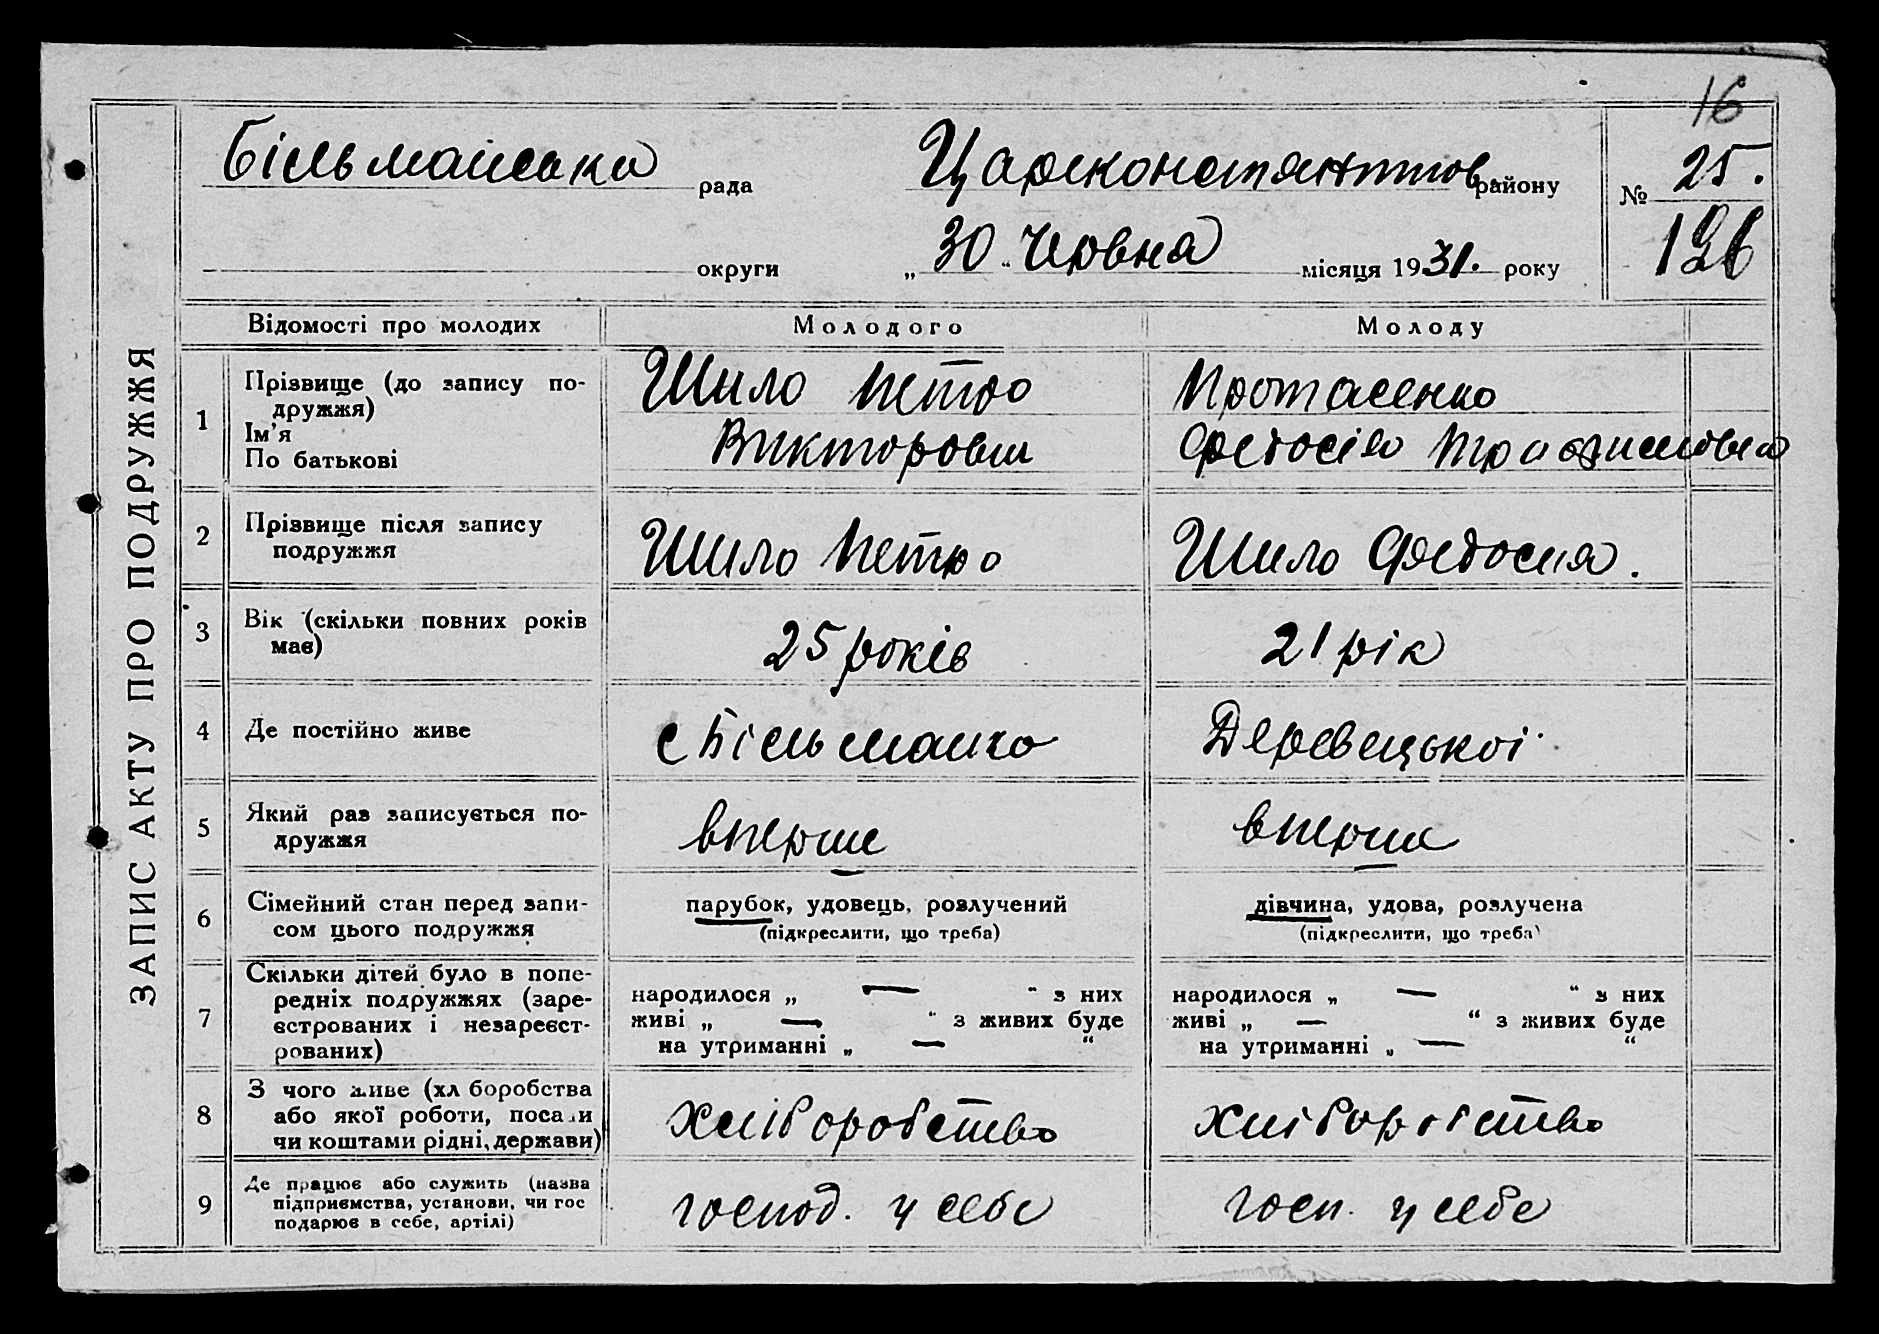 16
Більманська рада Царьконстянтинов. району № 25.
округи „30“ Червня місяця 1931. року 126
ЗАПИС АКТУ ПРО ПОДРУЖЖЯ
Відомості про молодих Молодого Молоду
1 Прізвище (до запису по-
дружжя)
Ім'я
По батькові
Шило Петро
Викторович
Протасенко
Федосія
2 Прізвище після запису
подружжя
Шило Петро
Шило Федосия.
3 Вік (скільки повних років
має)
25 років
21 рік
4 Де постійно живе
с Більманка
Деревецької
5 Який раз записується по-
дружжя
вперше
вперше
6 Сімейний стан перед запи-
сом цього подружжя
парубок, удовець, розлучений
(підкреслити, що треба)
дівчина, удова, розлучена
(підкреслити, що треба)
7 Скільки дітей було в попе-
редніх подружжях (заре-
єстрованих і незареєст-
рованих)
народилося „ — “ з них
живі „ — “ з живих буде
на утриманні „ — “
народилося „ — “ з них
живі „ — “ з живих буде
на утриманні „ — “
8 З чого живе (хл боробства
або якої роботи, посади
чи коштами рідні, держави)
Хліборобство
Хліборобство
9 Де працює або служить (назва
підприємства, установи, чи гос
подарює в себе, артілі)
господ. у себе
госп. у себе